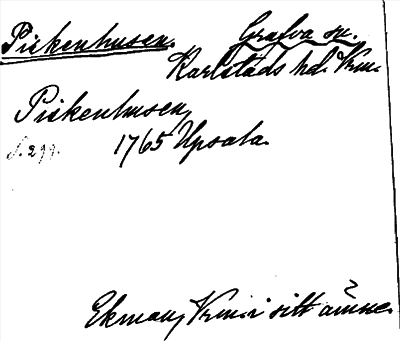 Piskenhusen. Grafva sn.
Karlstads hd. Vrm.
Piskenhusen,
s. 299. 1765 Upsala.
Ekman, Vrm. i sitt ämne.